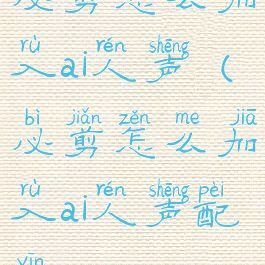 必剪怎么加
rù rén shēng
入ai人声(
bì jiǎn zěn me jiā
必剪怎么加
rù rén shēng pèi
入ai人声配
yīn